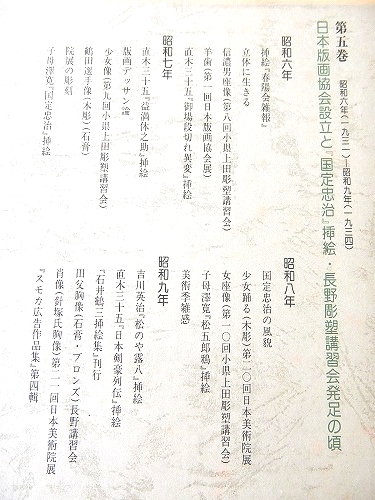 第五巻　昭和六年(一九三一)—昭和九年(一九三四)
日本版画協会設立と『国定忠治』挿絵・長野彫塑講習会発足の頃
昭和六年
挿絵『春陽会雑報』
立体に生きる
信濃男座像(第八回小県上田彫塑講習会)
羊歯(第一回日本版画協会展)
直木三十五『御場段切れ異変』挿絵
昭和七年
直木三十五『益満休之助』挿絵
版画デッサン論
少女像(第九回小県上田彫塑講習会)
鶴田選手像(木彫)(石膏)
院展の彫刻
子母澤寛『国定忠治』挿絵
昭和八年
国定忠治の風貌
少女踊る(木彫)第二〇回日本美術院展
女座像(第一〇回小県上田彫塑講習会)
子母澤寛『松五郎鴉』挿絵
美術季雑感
昭和九年
吉川英治『松のや露八』挿絵
直木三十五『日本剣豪列伝』挿絵
『石井鶴三挿絵集』刊行
田父胸像(石膏・ブロンズ)長野講習会
肖像(針塚氏胸像)第二一回日本美術院展
『スモカ広告作品集』第四輯